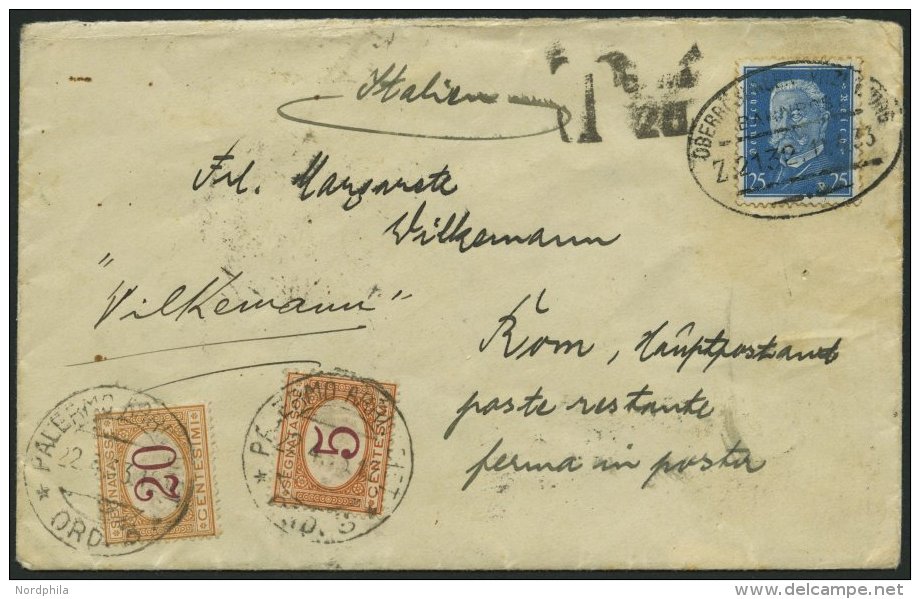 Italien
T
20
25 25
Z.2138
Frl. Margarete
Wilkemann
"Vilkemann"
Rom, Hauptpostamt
poste restante
ferma in posta
PALERMO
22
ORD.
SEGNATASSE
20
CENTESIMI
SEGNATASSE
5
CENTESIMI
Nordphila
www.delcampe.net